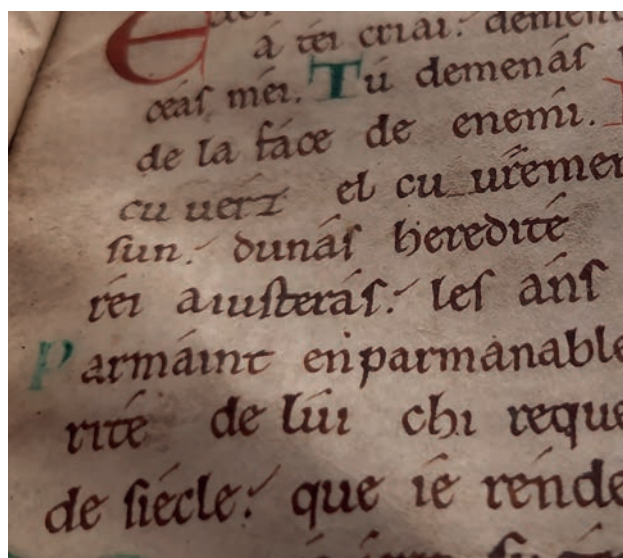 á tei criai. demen
ceas mei. Tú demenás
de la fáce de enemi.
cu uerz et cu_uremen
sun. dunás heredité
réi aiusterás. les áns
Parmáint enparmanable
rité de lúi chi reque
de siécle. que ié rende